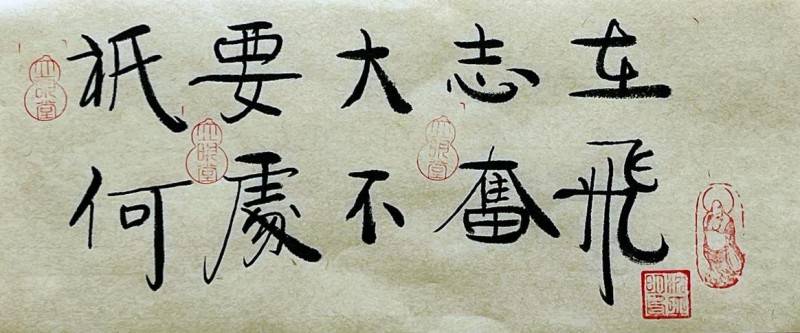 祇要大志在
何處不奮飛